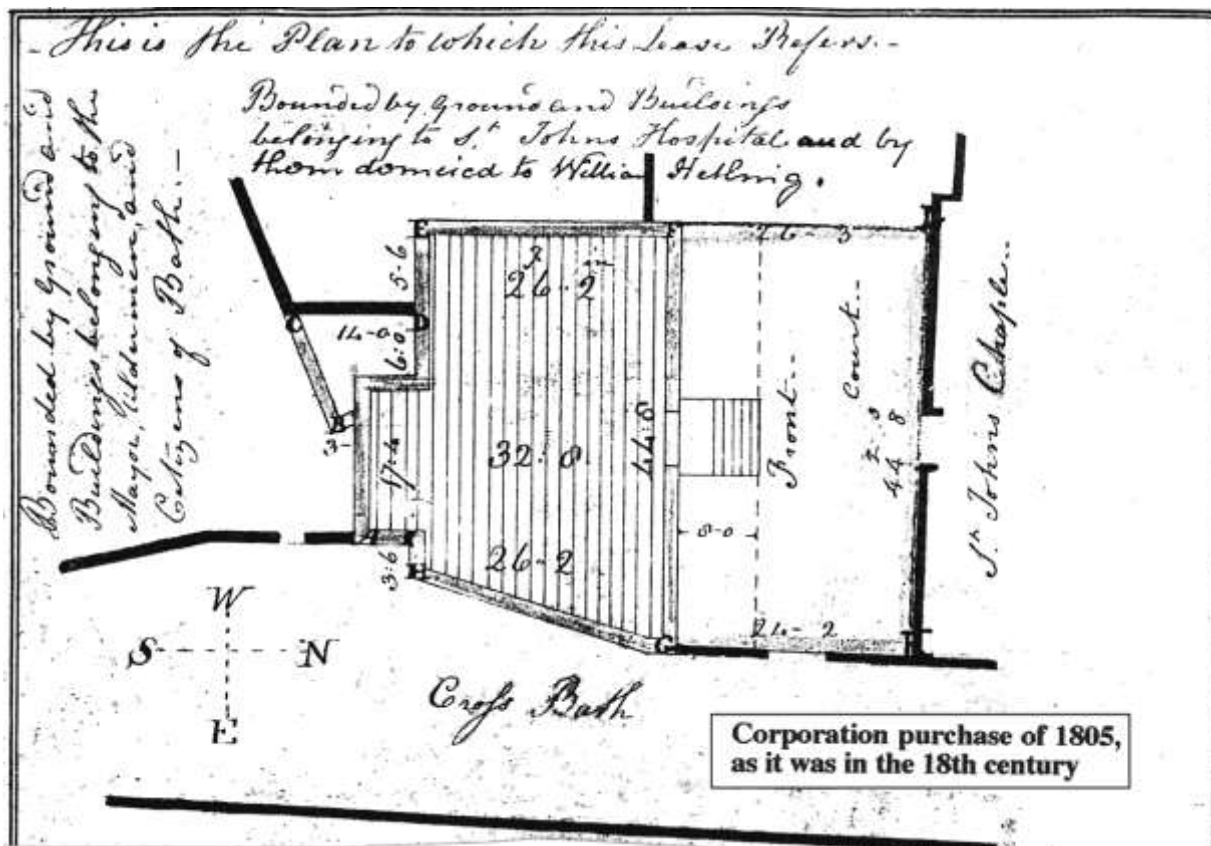 - This is the Plan to which this Lease Refers. -
Bounded by Ground and Buildings
belonging to St. Johns Hospital and by
them domiced to William
Bounded by Ground and
Buildings belonging to the
Mayor, Aldermen, and
Citizens of Bath. -
E
F
I
26 - 3
5-6
26-2
C
D
14-0
6:0
B
3-
17-4
32:8
44:8
Front
Court
44 8
St. Johns Chaple.
8-0
A
3:6
H
26-2
G
24-2
W
S
N
E
Cross Bath
Corporation purchase of 1805,
as it was in the 18th century